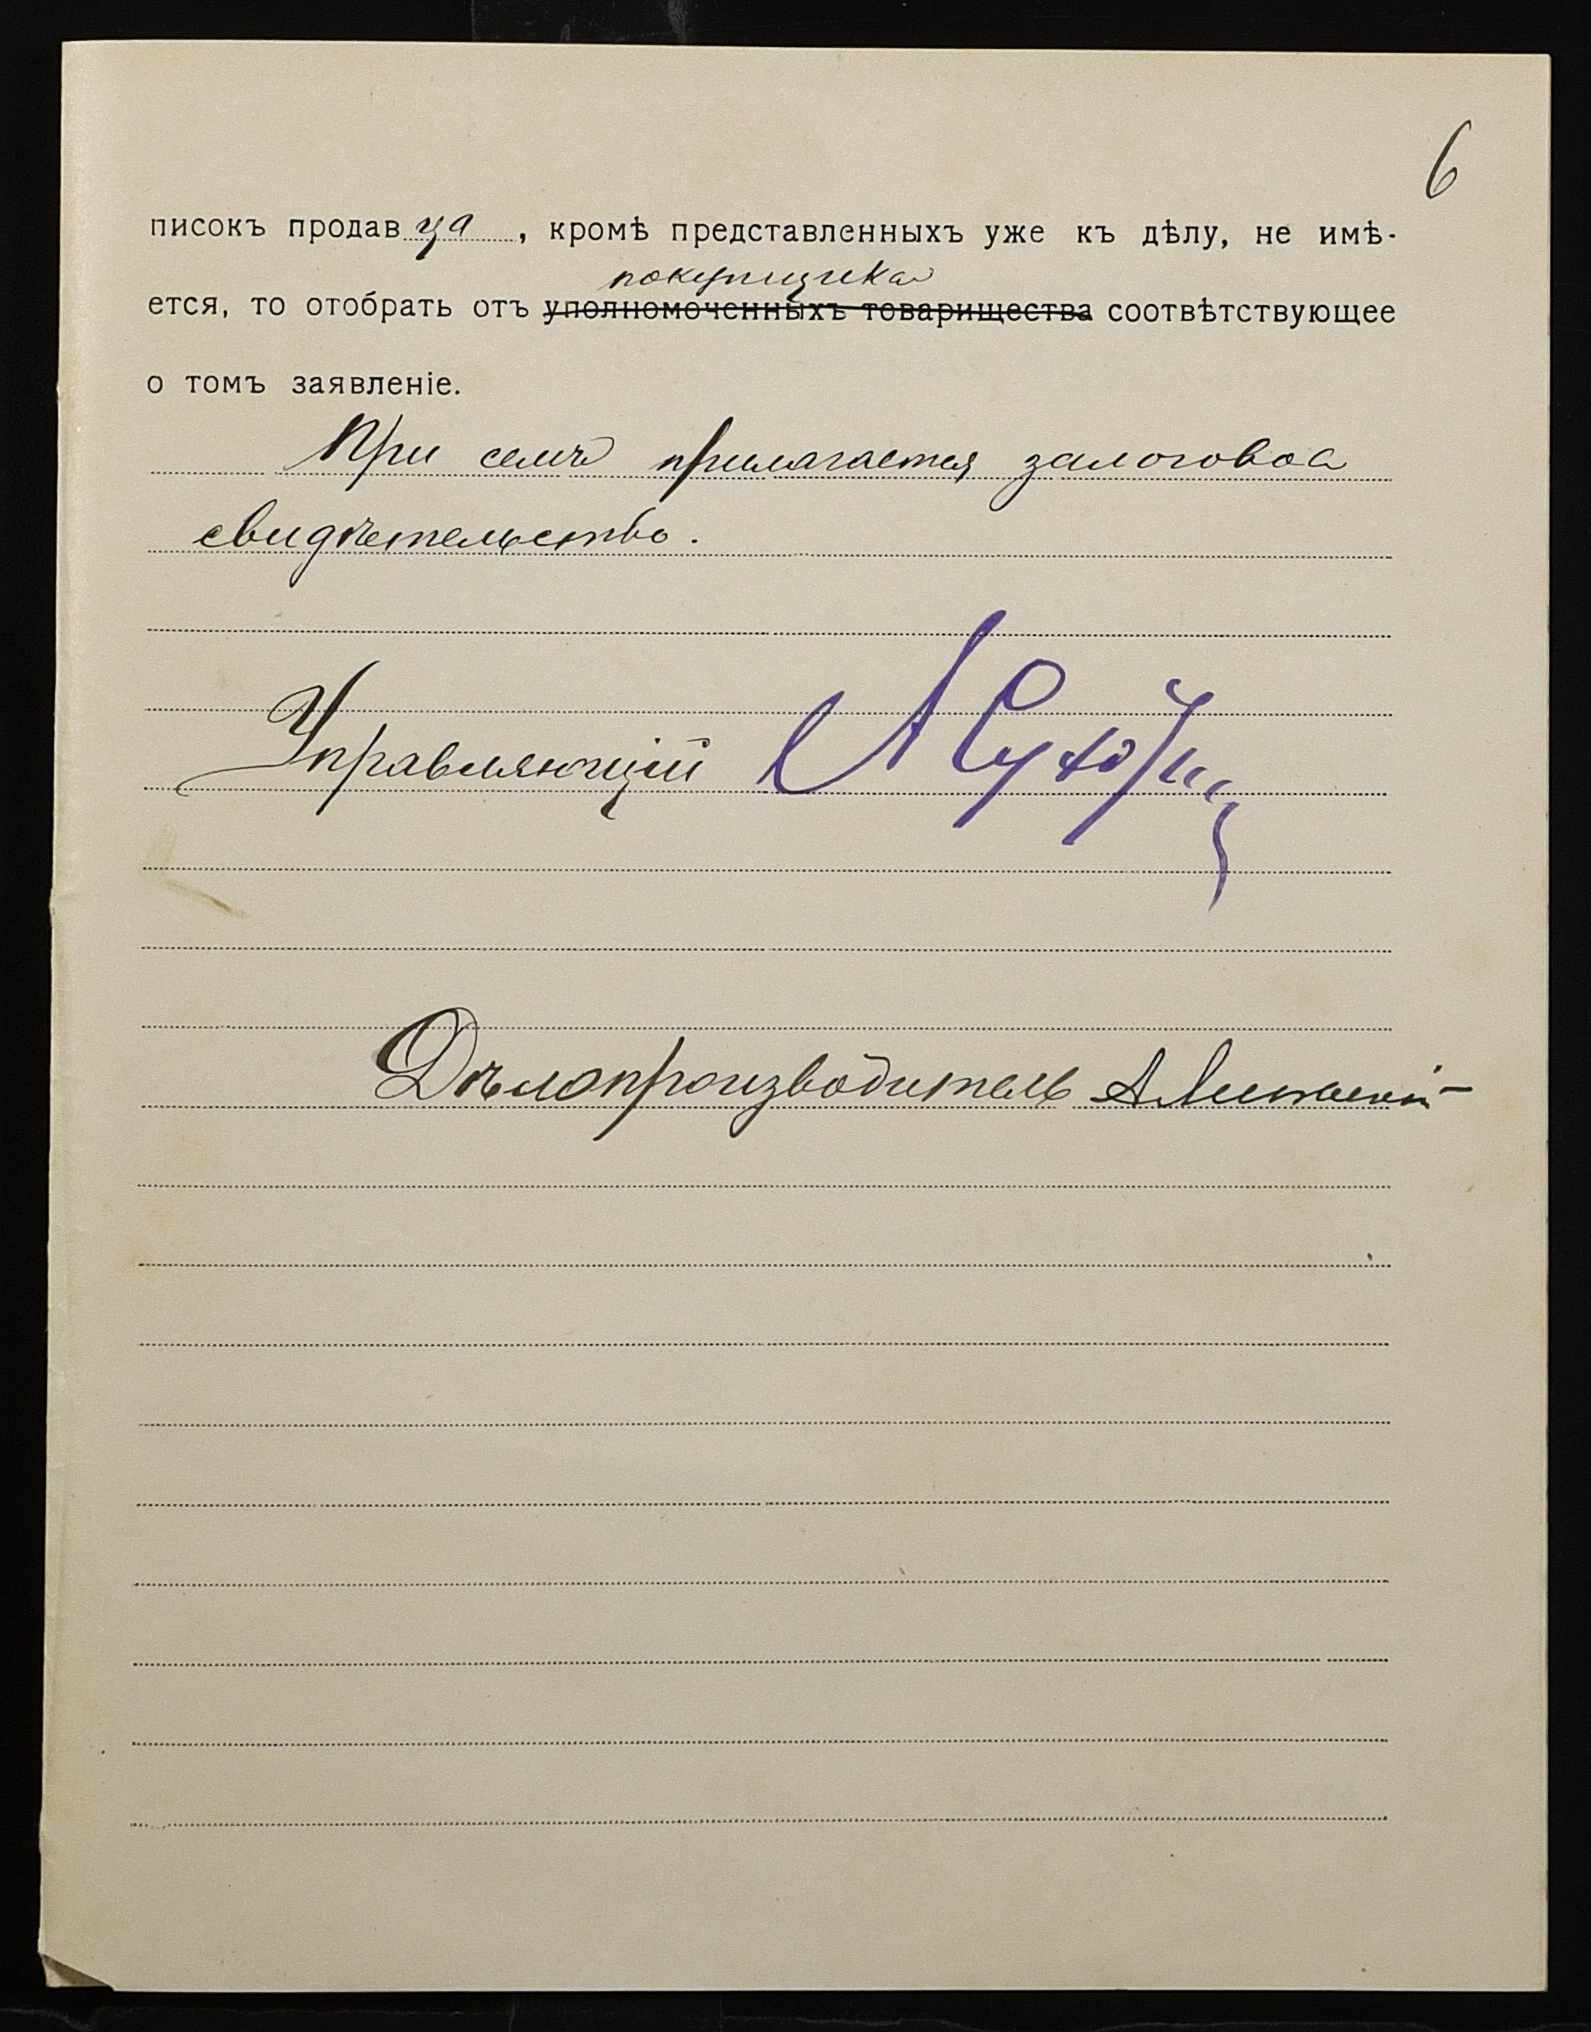 6
писокъ продавца, кромѣ представленныхъ уже къ дѣлу, не имѣ-
покупщика
ется, то отобрать отъ уполномоченныхъ товарищества соотвѣтствующее
о томъ заявленіе.
При семъ прилагается залоговое
свидѣтельство.
Управляющій А Сухо
Дѣлопроизводитель А